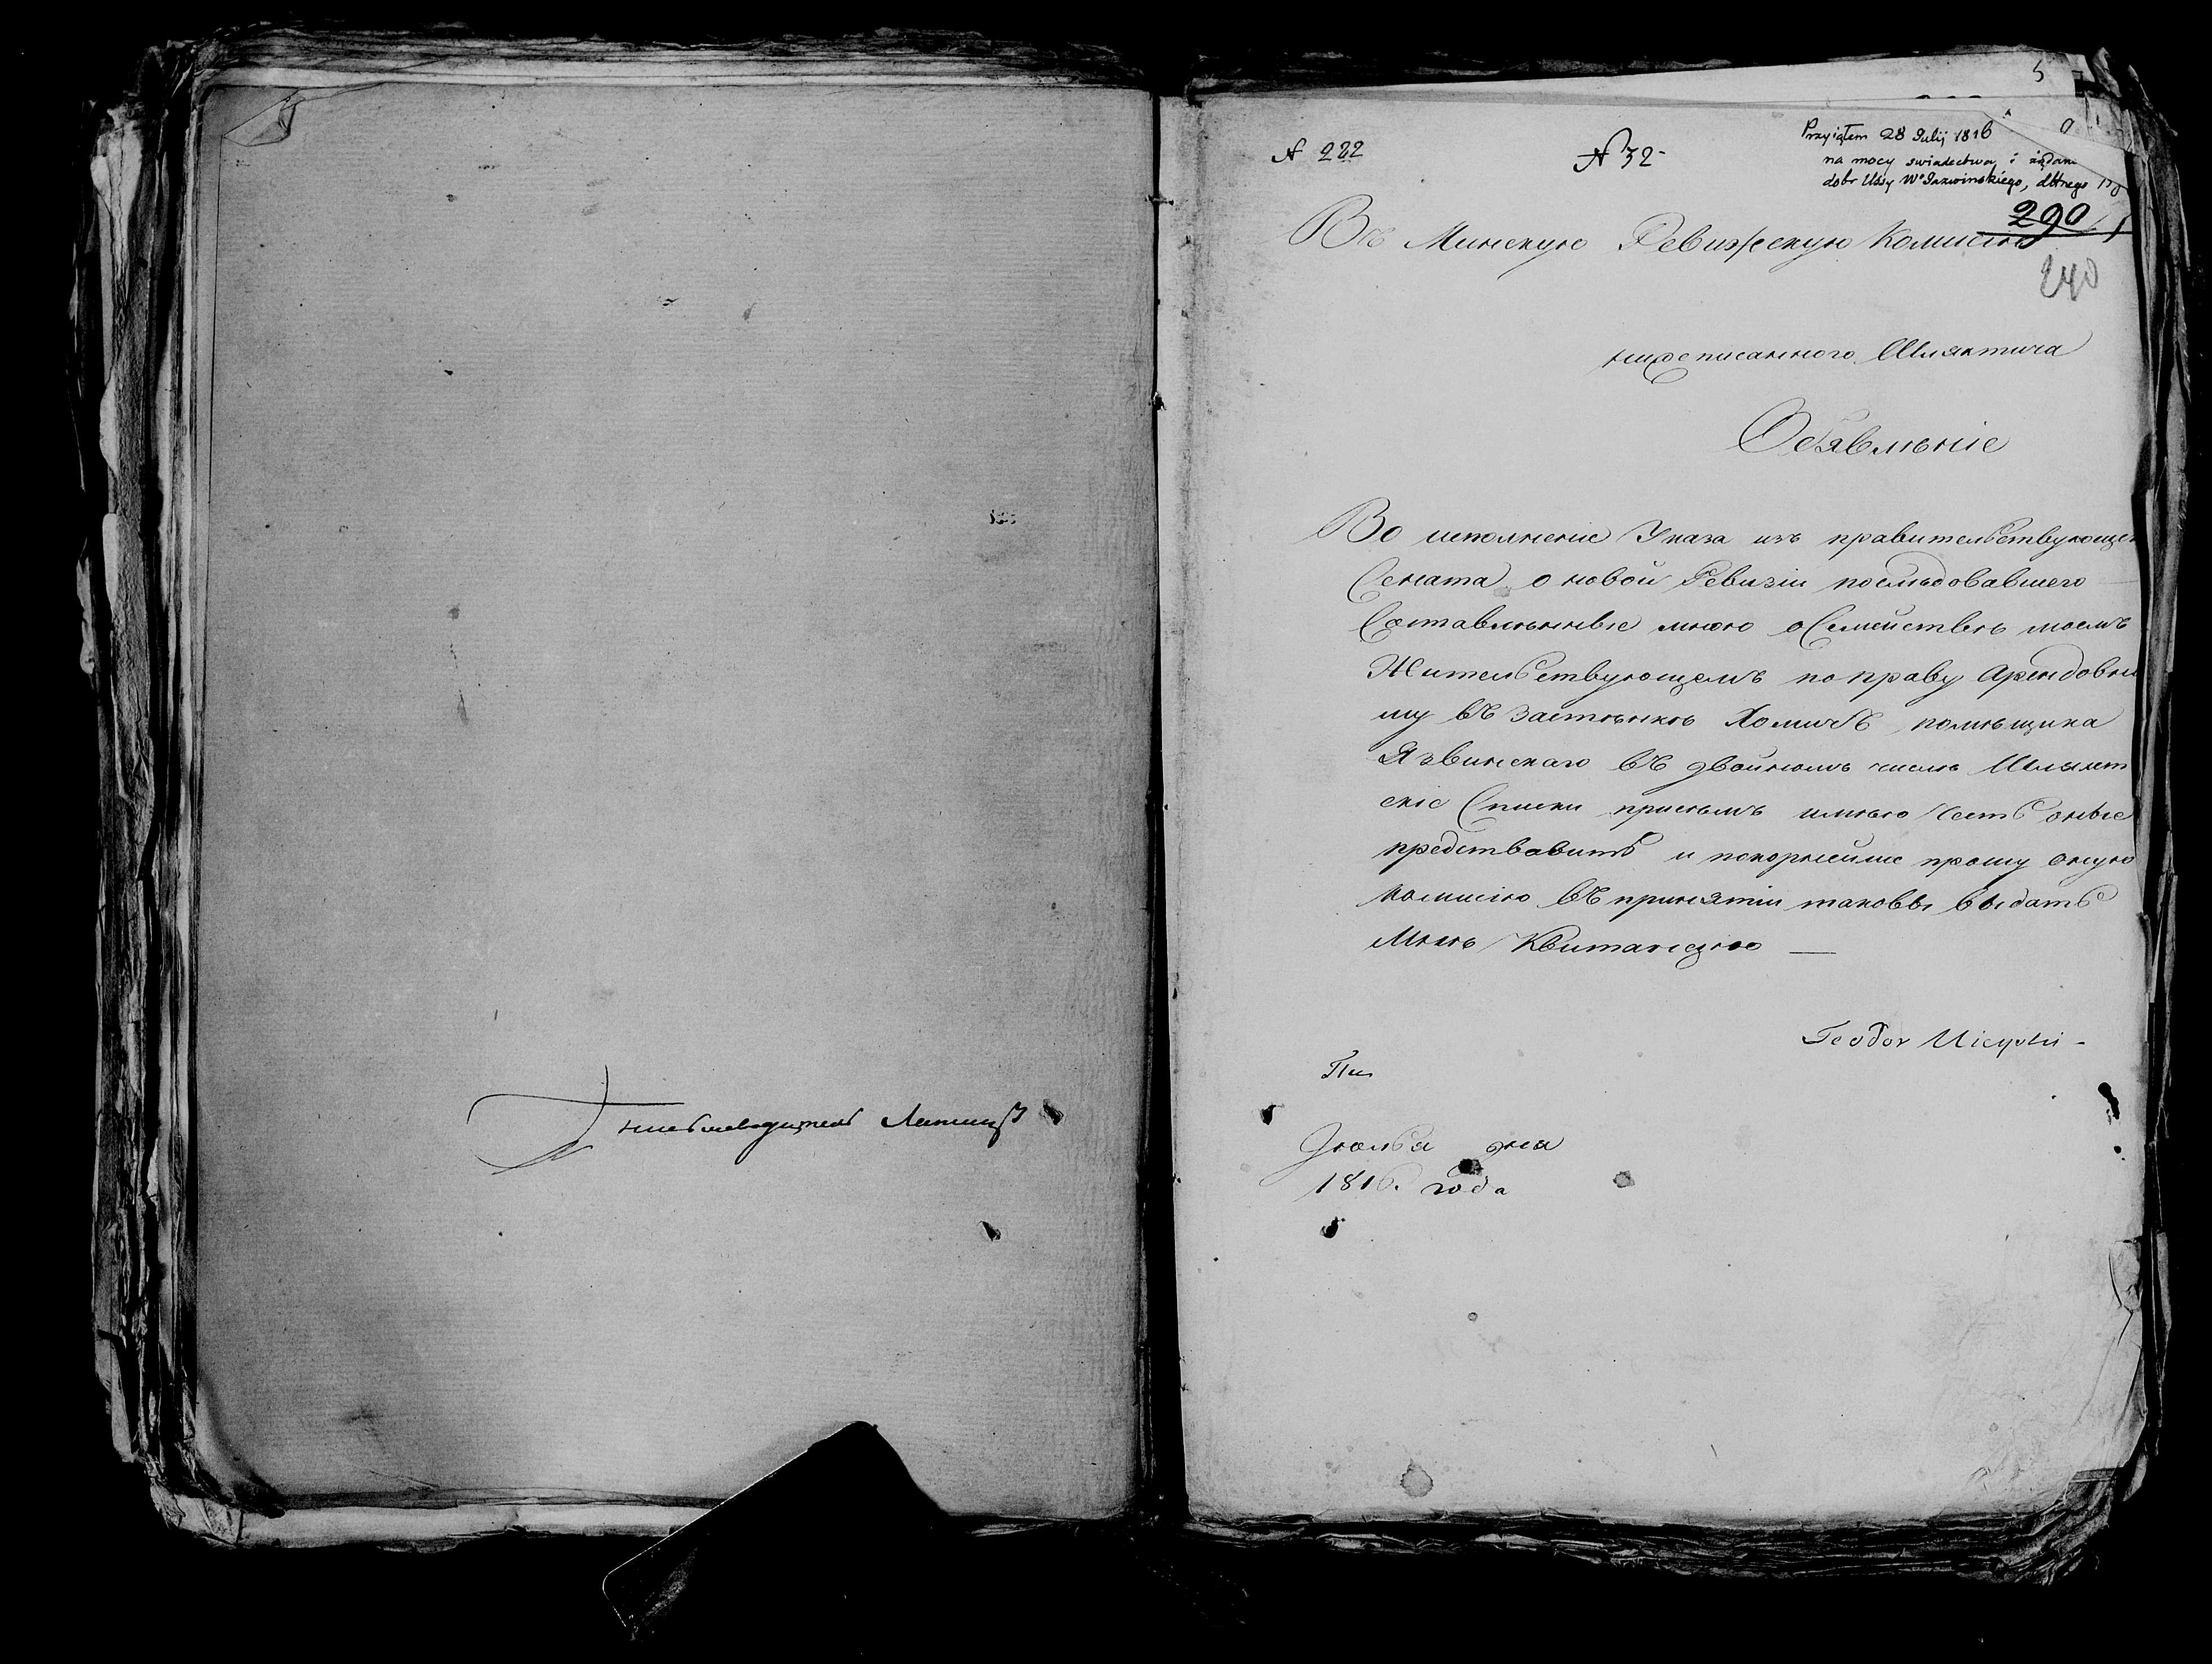 5
№ 222
№ 32-
Przyiąłem 28 Julij 1816
na mocy swiadectwa i żądan
dobr Ussy Wo Jazwinskiego,
290
240
Въ Минскую Ревижскую Комисію
нижеписанного Шляхтича
Обявленіе
Во исполненіе Указа изъ правительствующе
Сената о новой Ревизіи последовавшего
Составленные мною о Семействе моемъ
Жительствующемъ по праву Арендовн
му въ Застенке Хомичъ помещика
Язвинскаго въ двойномъ числе Шляхет
скіе Списки присемъ имею честь оные
предствавить и покорнейше прошу оную
комисію въ принятіи таковы выдать
Мне Квитанцію —
Teodor
Июлья дня
1816. года